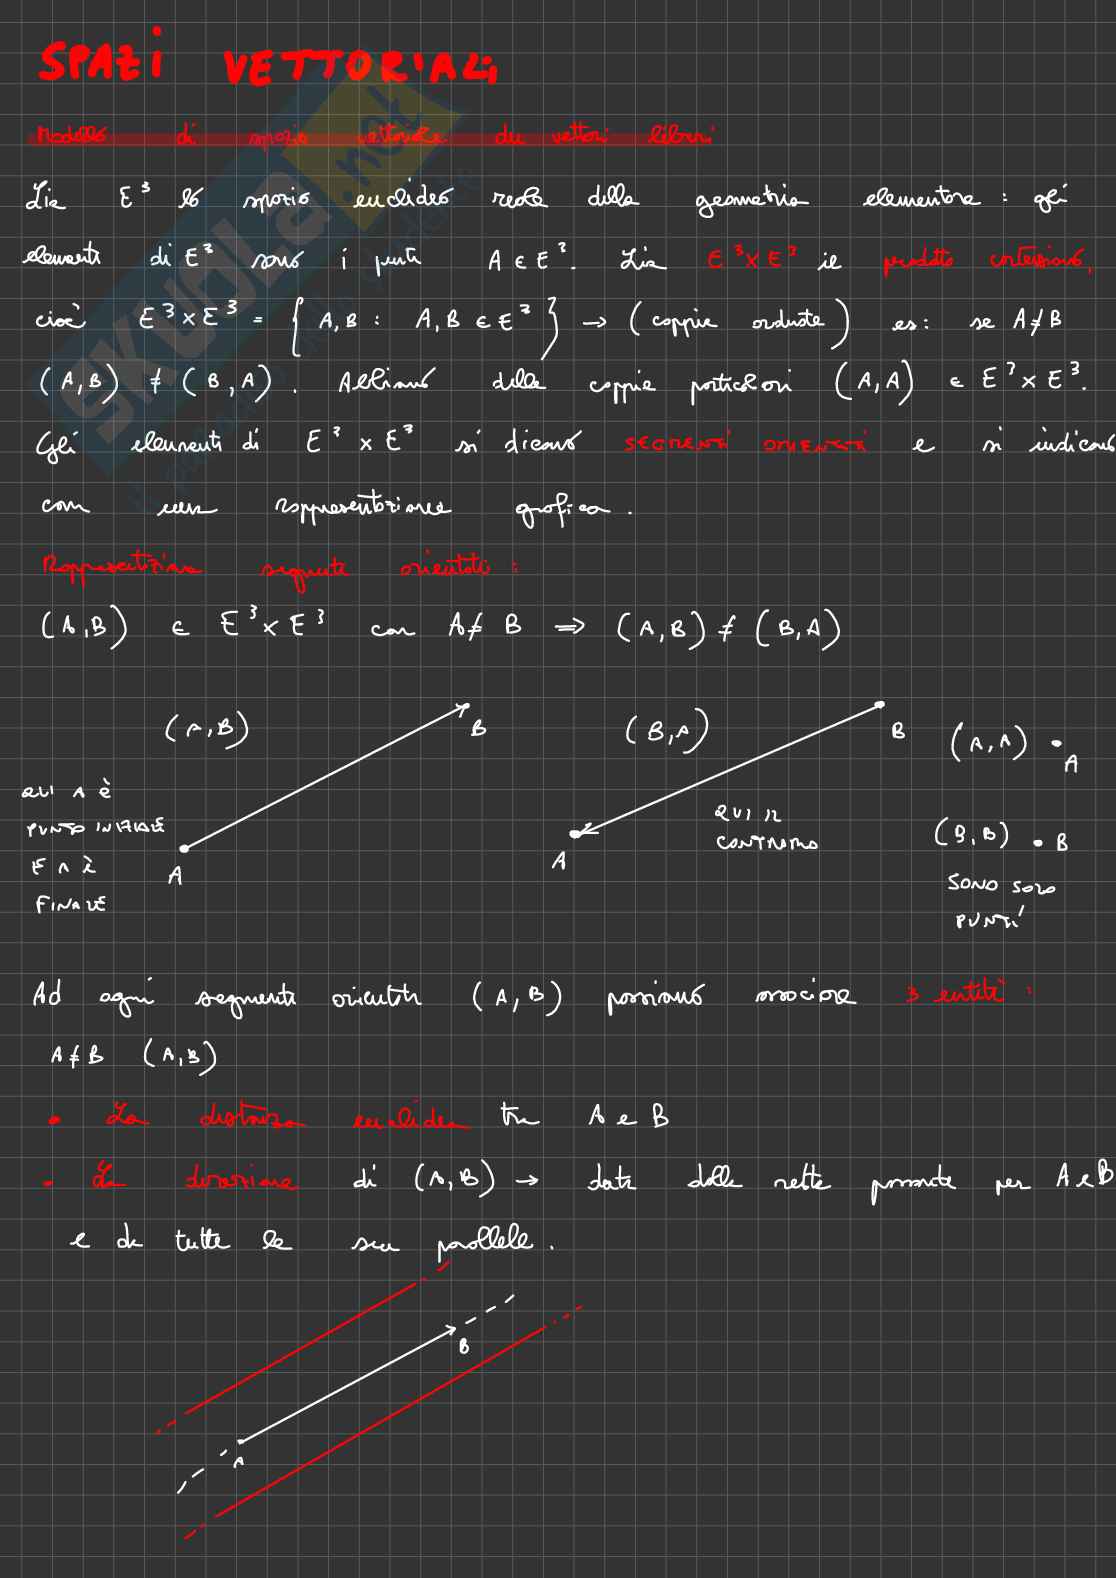 SPAZI VETTORIALI
Modello di spazio vettoriale dei vettori liberi
Sia E³ lo spazio euclideo reale della geometria elementare : gli
elementi di E³ sono i punti A ∈ E³. Sia E³×E³ il prodotto cartesiano,
cioè E³×E³ = { A,B : A,B ∈ E³ } → (coppie ordinate) es: se A≠B
(A,B) ≠ (B,A). Abbiamo delle coppie particolari (A,A) ∈ E³×E³.
Gli elementi di E³ × E³ si dicono SEGMENTI ORIENTATI e si indicano
con una rappresentazione grafica.
Rappresentazione segmenti orientati :
(A,B) ∈ E³×E³ con A≠B ⇒ (A,B) ≠ (B,A)
(A,B) B
(B,A) B
(A,A) • A
QUI A È
PUNTO INIZIALE
E A È
FINALE
A
QUI IL
CONTRARIO
A
(B,B) • B
SONO SOLO
PUNTI
Ad ogni segmento orientato (A,B) possiamo associare 3 entità :
A≠B (A,B)
• La distanza euclidea tra A e B
• La direzione di (A,B) → data dalla retta passante per A e B
e da tutte le sue parallele.
B
A
SKUOLA.net